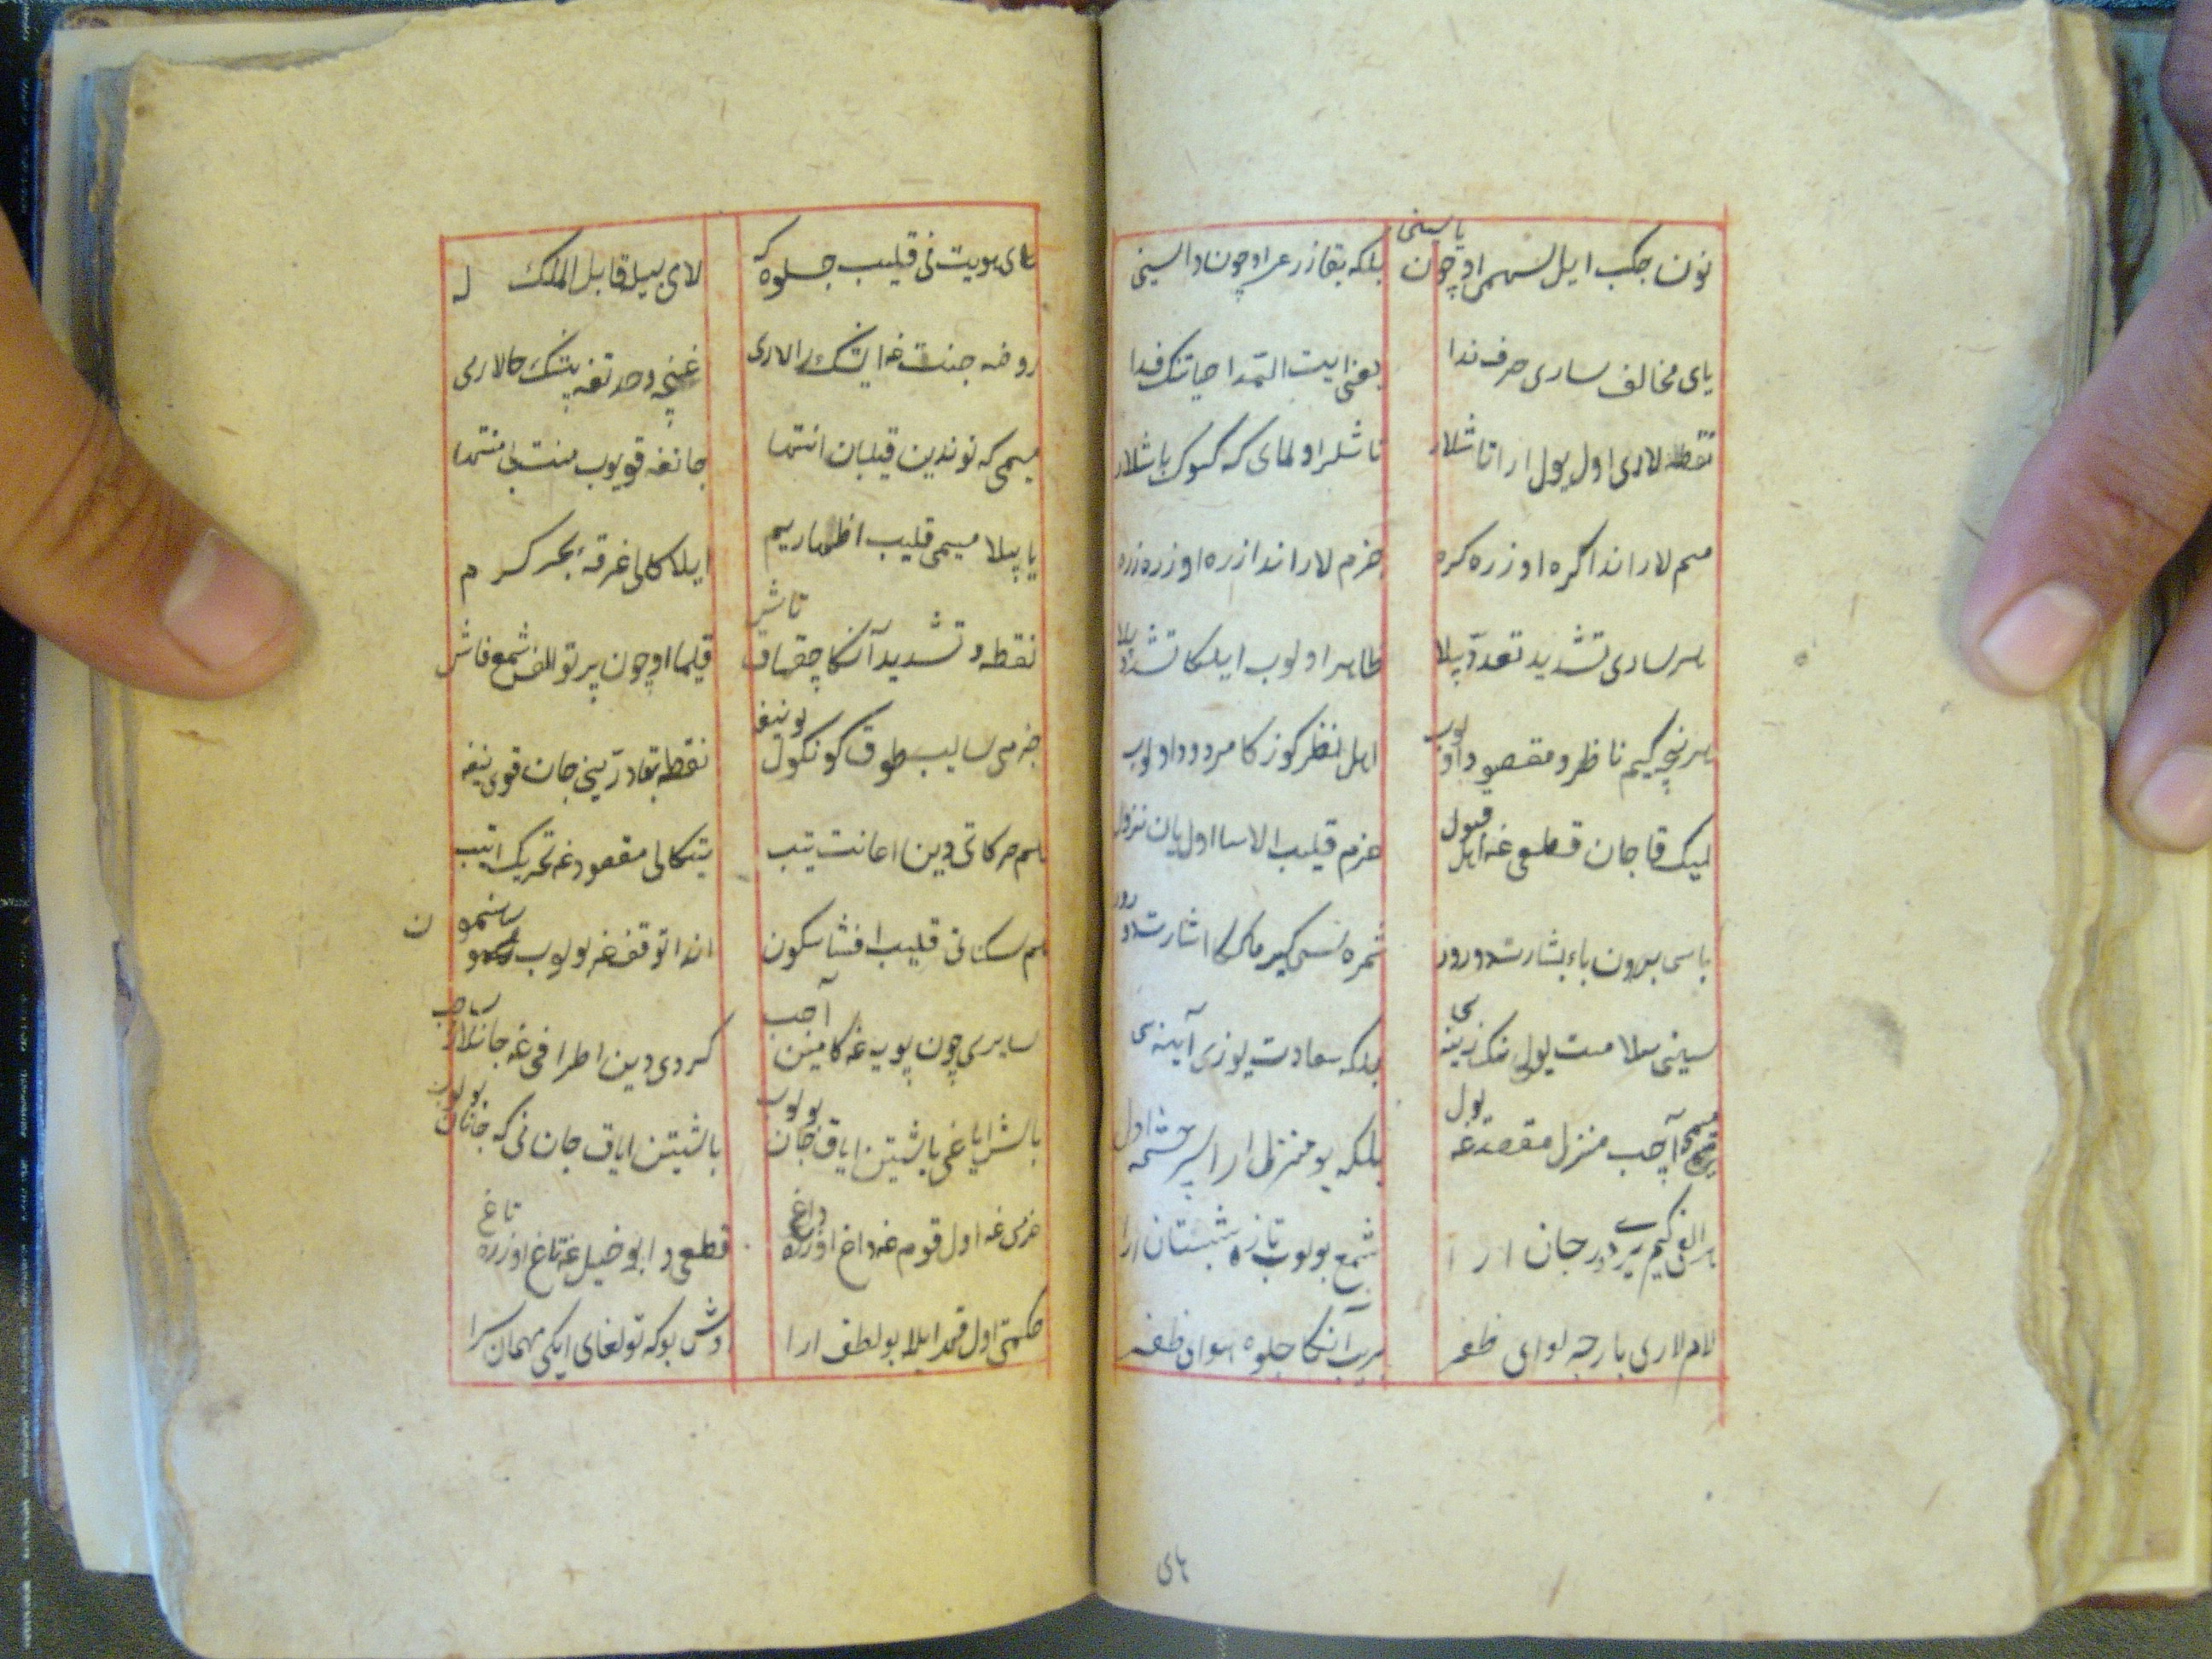 نون چکب ایل سهمی اوچون یاسینی بلکه بقا زرعی اوچون داسینی
یای مخالف ساری حرف ندا یعنی ایت التمدا حیاتنک فدا
نقطه لاری اول یول ارا تاشلار تاشلر اولمای که کسوک باشلار
میم لار اندا کره اوزره کره جزم لار اندا زره اوزره زره
هر ساری تشدید تعدی بیلا ظاهر اولوب ایلکا تشدد بیلا
هر نچه کیم ناظر و مقصود اولوب اهل نظر کوزکا مردود اولوب
لیک قاچان قطعی غه اهل قبول جزم قیلیب الاسا اول یان نزول
باسی بیرون باء بشارت دورور ثمره سی کیرماککا اشارت دورور
سینی سلامت یولی نینک زینه سی بلکه سعادت یوزی آیینه سی
میمی آچیب منزل مقصدغه یول بلکه بو منزل ارا سرچشمه اول
هر الفی کیم یری دور جان ارا شمع بولوب تازه شبستان ارا
لام لاری بارچه لوای ظفر بیریب آنکا جلوه هوای ظفر
های
های هویت نی قیلیب جلوه که لای بیله قابل الملک له
روضه جنت غه ایشک رالاری غنچه وحدتغه یتنک حالاری
میمی که نوندین قیلبان انتها جانغه قویوب منت بی منتها
یا بیلا میمی قیلیب اظهار یم ایلا کلی غرقهٔ بحر کرم
نقطه و تشدید آنکا چقماق تاش قیلما اوچون پرتو الف شمعی فاش
جزمی سالیب طوق کونکول بوینیغه نقطه بقا درینی جان قوینیغه
هم حرکاتی دین اعانت یتیب یتکالی مقصودغه تحریک ایتیب
هم سکناتی قیلیب افشا سکون اندا توقف غه بولوب رهنمون
سایری چون پویه غه کامین آچیب کردی دین اطرافی غه جانلار ساچیب
باش ایاغی باشیتن ایاق جان بولوب باشیتن ایاق جان نی که جانان بولوب
جزمی غه اول قوم غه داغ اوزره داغ قطعی دا بو خیل غه تاغ اوزره تاغ
حکمتی اول قمدا ایلا بو لطف ارا اوش بو که تولغای ایکی مهمان سرا